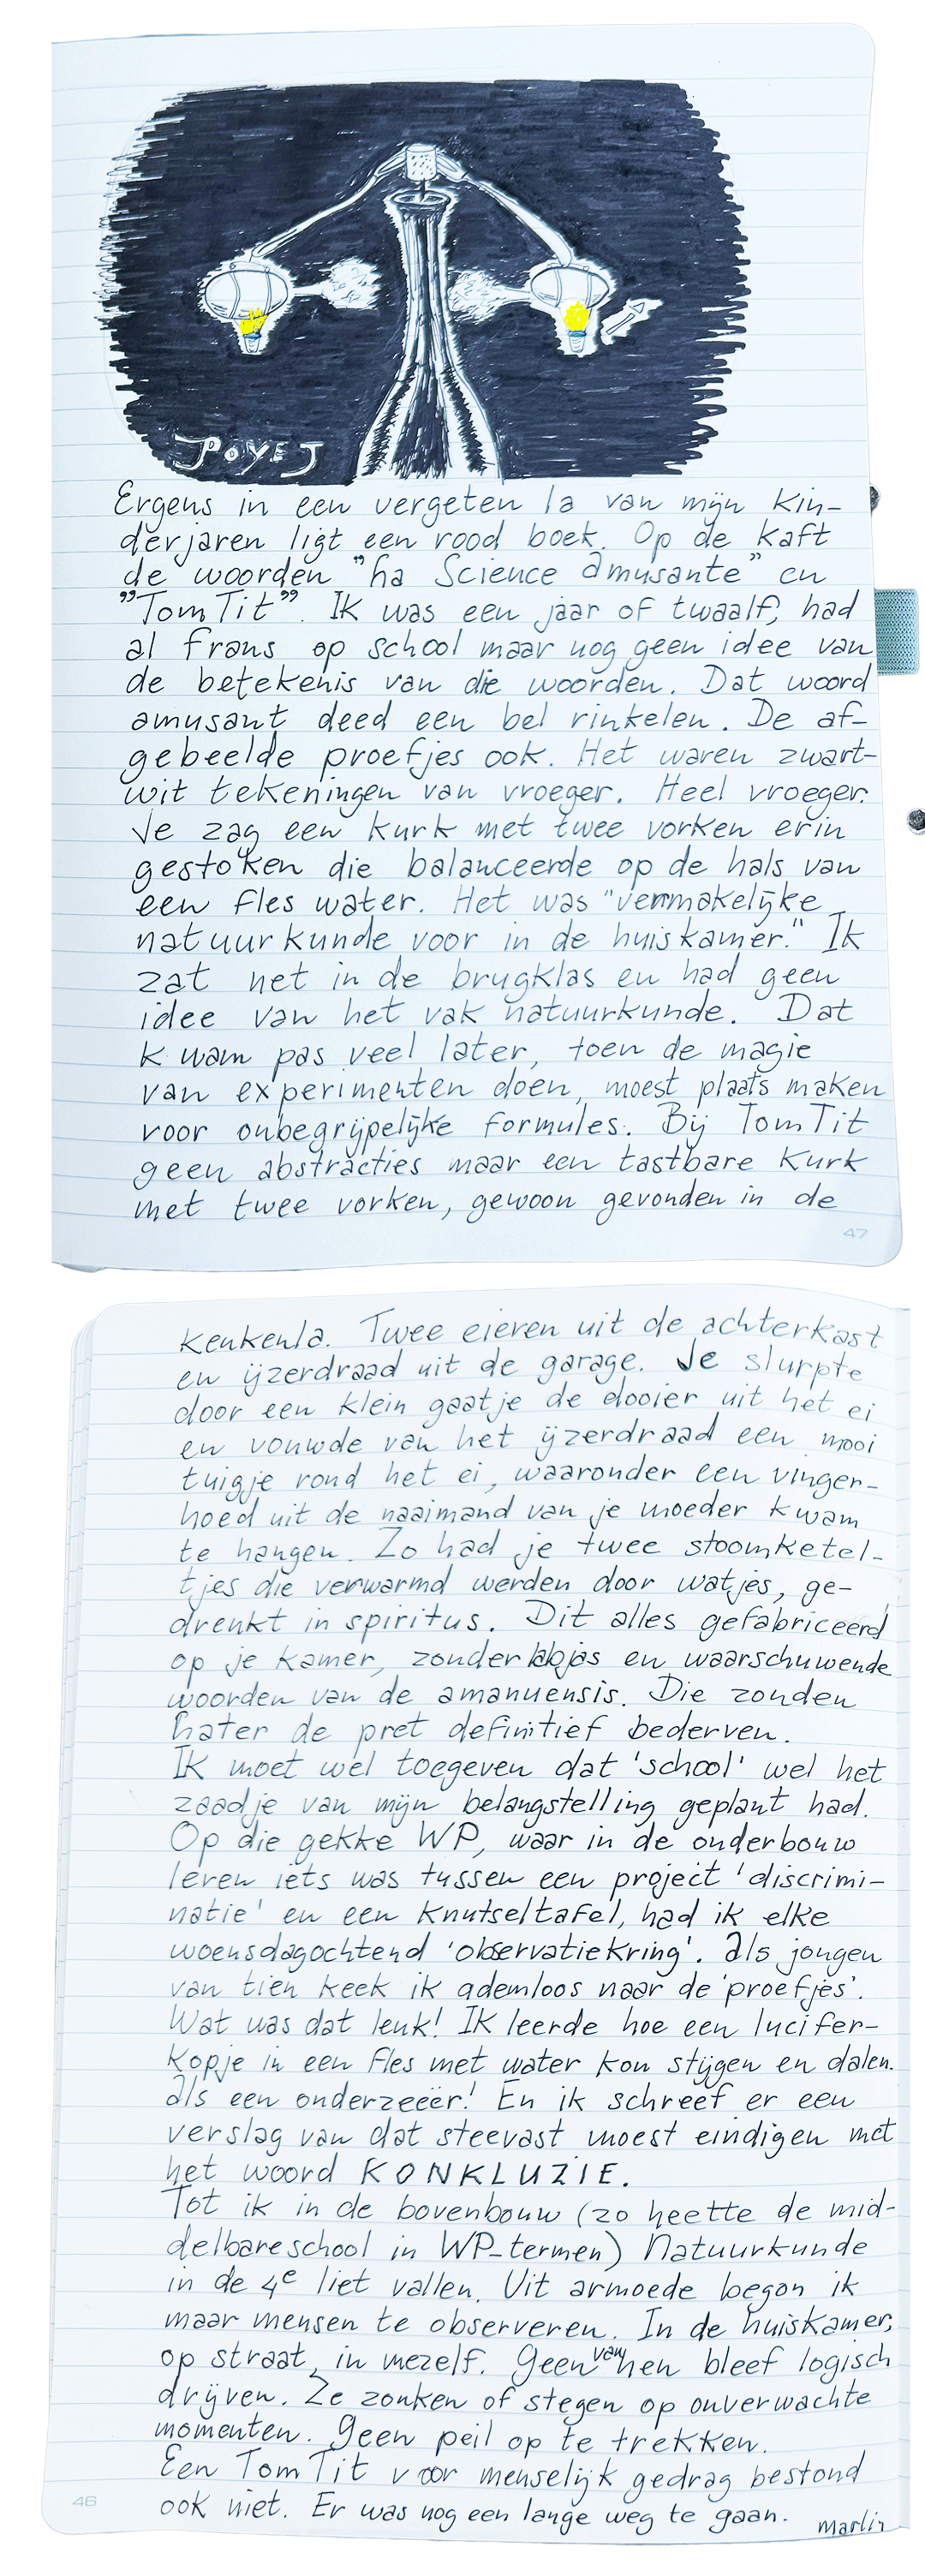 POYEJ
Ergens in een vergeten la van mijn kin-
derjaren ligt een rood boek. Op de kaft
de woorden "La Science amusante" en
"Tom Tit". Ik was een jaar of twaalf, had
al frans op school maar nog geen idee van
de betekenis van die woorden. Dat woord
amusant deed een bel rinkelen. De af-
gebeelde proefjes ook. Het waren zwart-
wit tekeningen van vroeger. Heel vroeger.
Je zag een kurk met twee vorken erin
gestoken die balanceerde op de hals van
een fles water. Het was "vermakelijke
natuurkunde voor in de huiskamer." Ik
zat net in de brugklas en had geen
idee van het vak natuurkunde. Dat
kwam pas veel later, toen de magie
van experimenten doen, moest plaats maken
voor onbegrijpelijke formules. Bij Tom Tit
geen abstracties maar een tastbare kurk
met twee vorken, gewoon gevonden in de
47
keukenla. Twee eieren uit de achterkast
en ijzerdraad uit de garage. Je slurpte
door een klein gaatje de dooier uit het ei
en vouwde van het ijzerdraad een mooi
tuigje rond het ei, waaronder een vinger-
hoed uit de naaimand van je moeder kwam
te hangen. Zo had je twee stoomketel-
tjes die verwarmd werden door watjes, ge-
drenkt in spiritus. Dit alles gefabriceerd
op je kamer, zonder labjas en waarschuwende
woorden van de amanuensis. Die zouden
later de pret definitief bederven.
Ik moet wel toegeven dat 'school' wel het
zaadje van mijn belangstelling geplant had.
Op die gekke WP, waar in de onderbouw
leren iets was tussen een project 'discrimi-
natie' en een knutseltafel, had ik elke
woensdagochtend 'observatiekring'. Als jongen
van tien keek ik ademloos naar de 'proefjes'.
Wat was dat leuk! Ik leerde hoe een lucifer-
kopje in een fles met water kon stijgen en dalen.
Als een onderzeeër! En ik schreef er een
verslag van dat steevast moest eindigen met
het woord KONKLUZIE.
Tot ik in de bovenbouw (zo heette de mid-
delbareschool in WP-termen) Natuurkunde
in de 4e liet vallen. Uit armoede begon ik
maar mensen te observeren. In de huiskamer,
op straat, in mezelf. Geen van hen bleef logisch
drijven. Ze zonken of stegen op onverwachte
momenten. Geen peil op te trekken.
Een Tom Tit voor menselijk gedrag bestond
ook niet. Er was nog een lange weg te gaan.
marlin
46